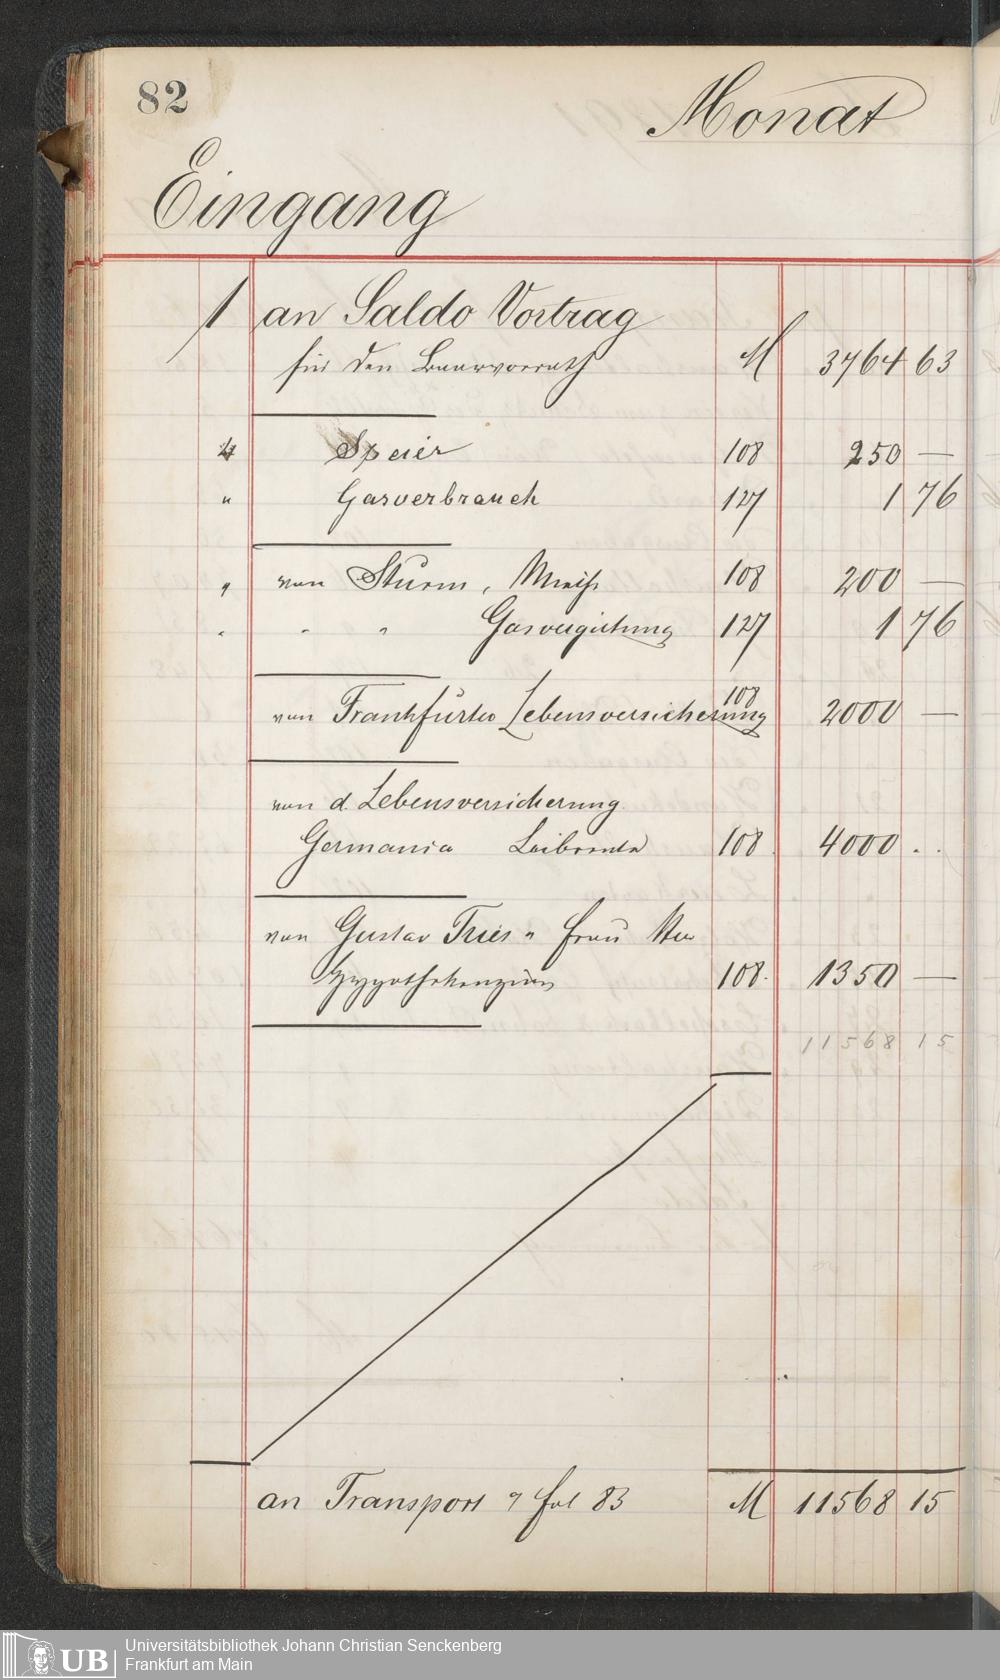 82
Monat
Eingang
1 an Saldo Vortrag
für den Baarvorrath M 3764 63
4 Speier 108 250 —
" Gasverbrauch 127 1 76
" von Sturm, Miethe 108 200 —
" " " Gasvergütung 127 1 76
von Frankfurter Lebensversicherung 108 2000 —
von d. Lebensversicherung
Germania Leibrente 108 4000 . .
von Gustav Fries Frau
Hypothekenzinsen 108 1350 —
11568 15
an Transport fol 83 M 11568 15
UB Universitätsbibliothek Johann Christian Senckenberg
Frankfurt am Main